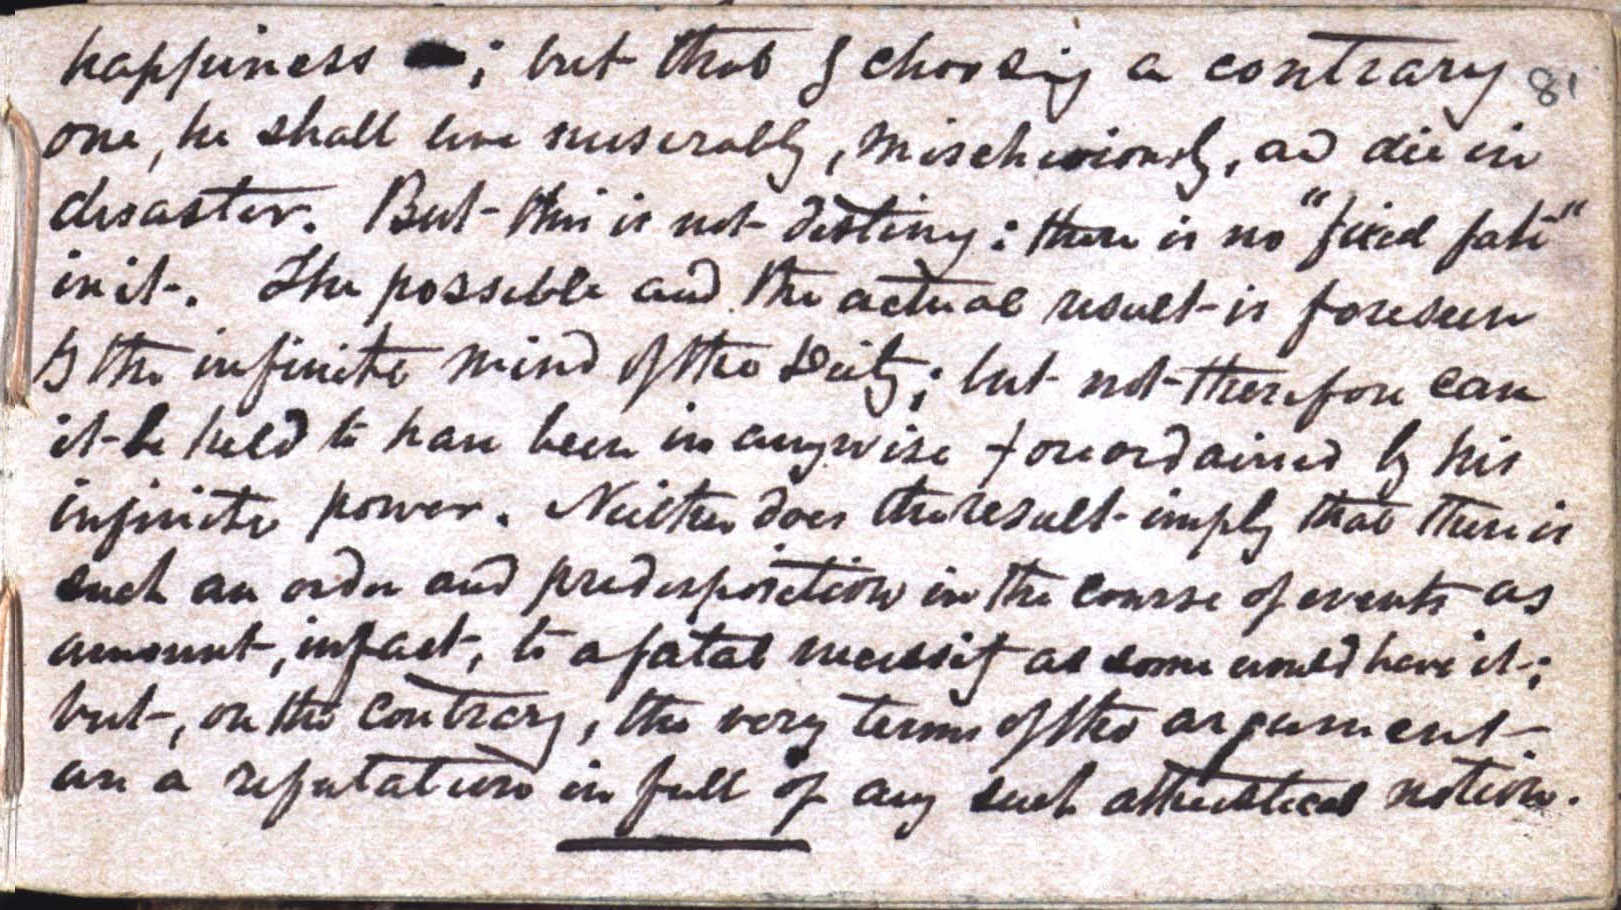 happiness ; but that if choosing a contrary 81
one, he shall live miserably, mischeviously, and die in
disaster. But this is not destiny: there is no "fixed fate"
in it. The possible and the actual result is foreseen
by the infinite mind of the Deity; but not therefore can
it be held to have been in anywise foreordained by his
infinite power. Neither does the result imply that there is
such an order and predisposition in the course of events as
amount, in fact, to a fatal necessity as some would have it;
but, on the contrary, the very terms of the argument
are a refutation in full of any such atheistical notion.